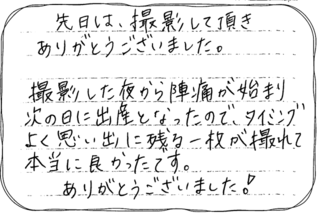 先日は、撮影して頂き
ありがとうございました。
撮影した夜から陣痛が始まり
次の日に出産となったので、タイミング
よく思い出に残る一枚が撮れて
本当に良かったです。
ありがとうございました!